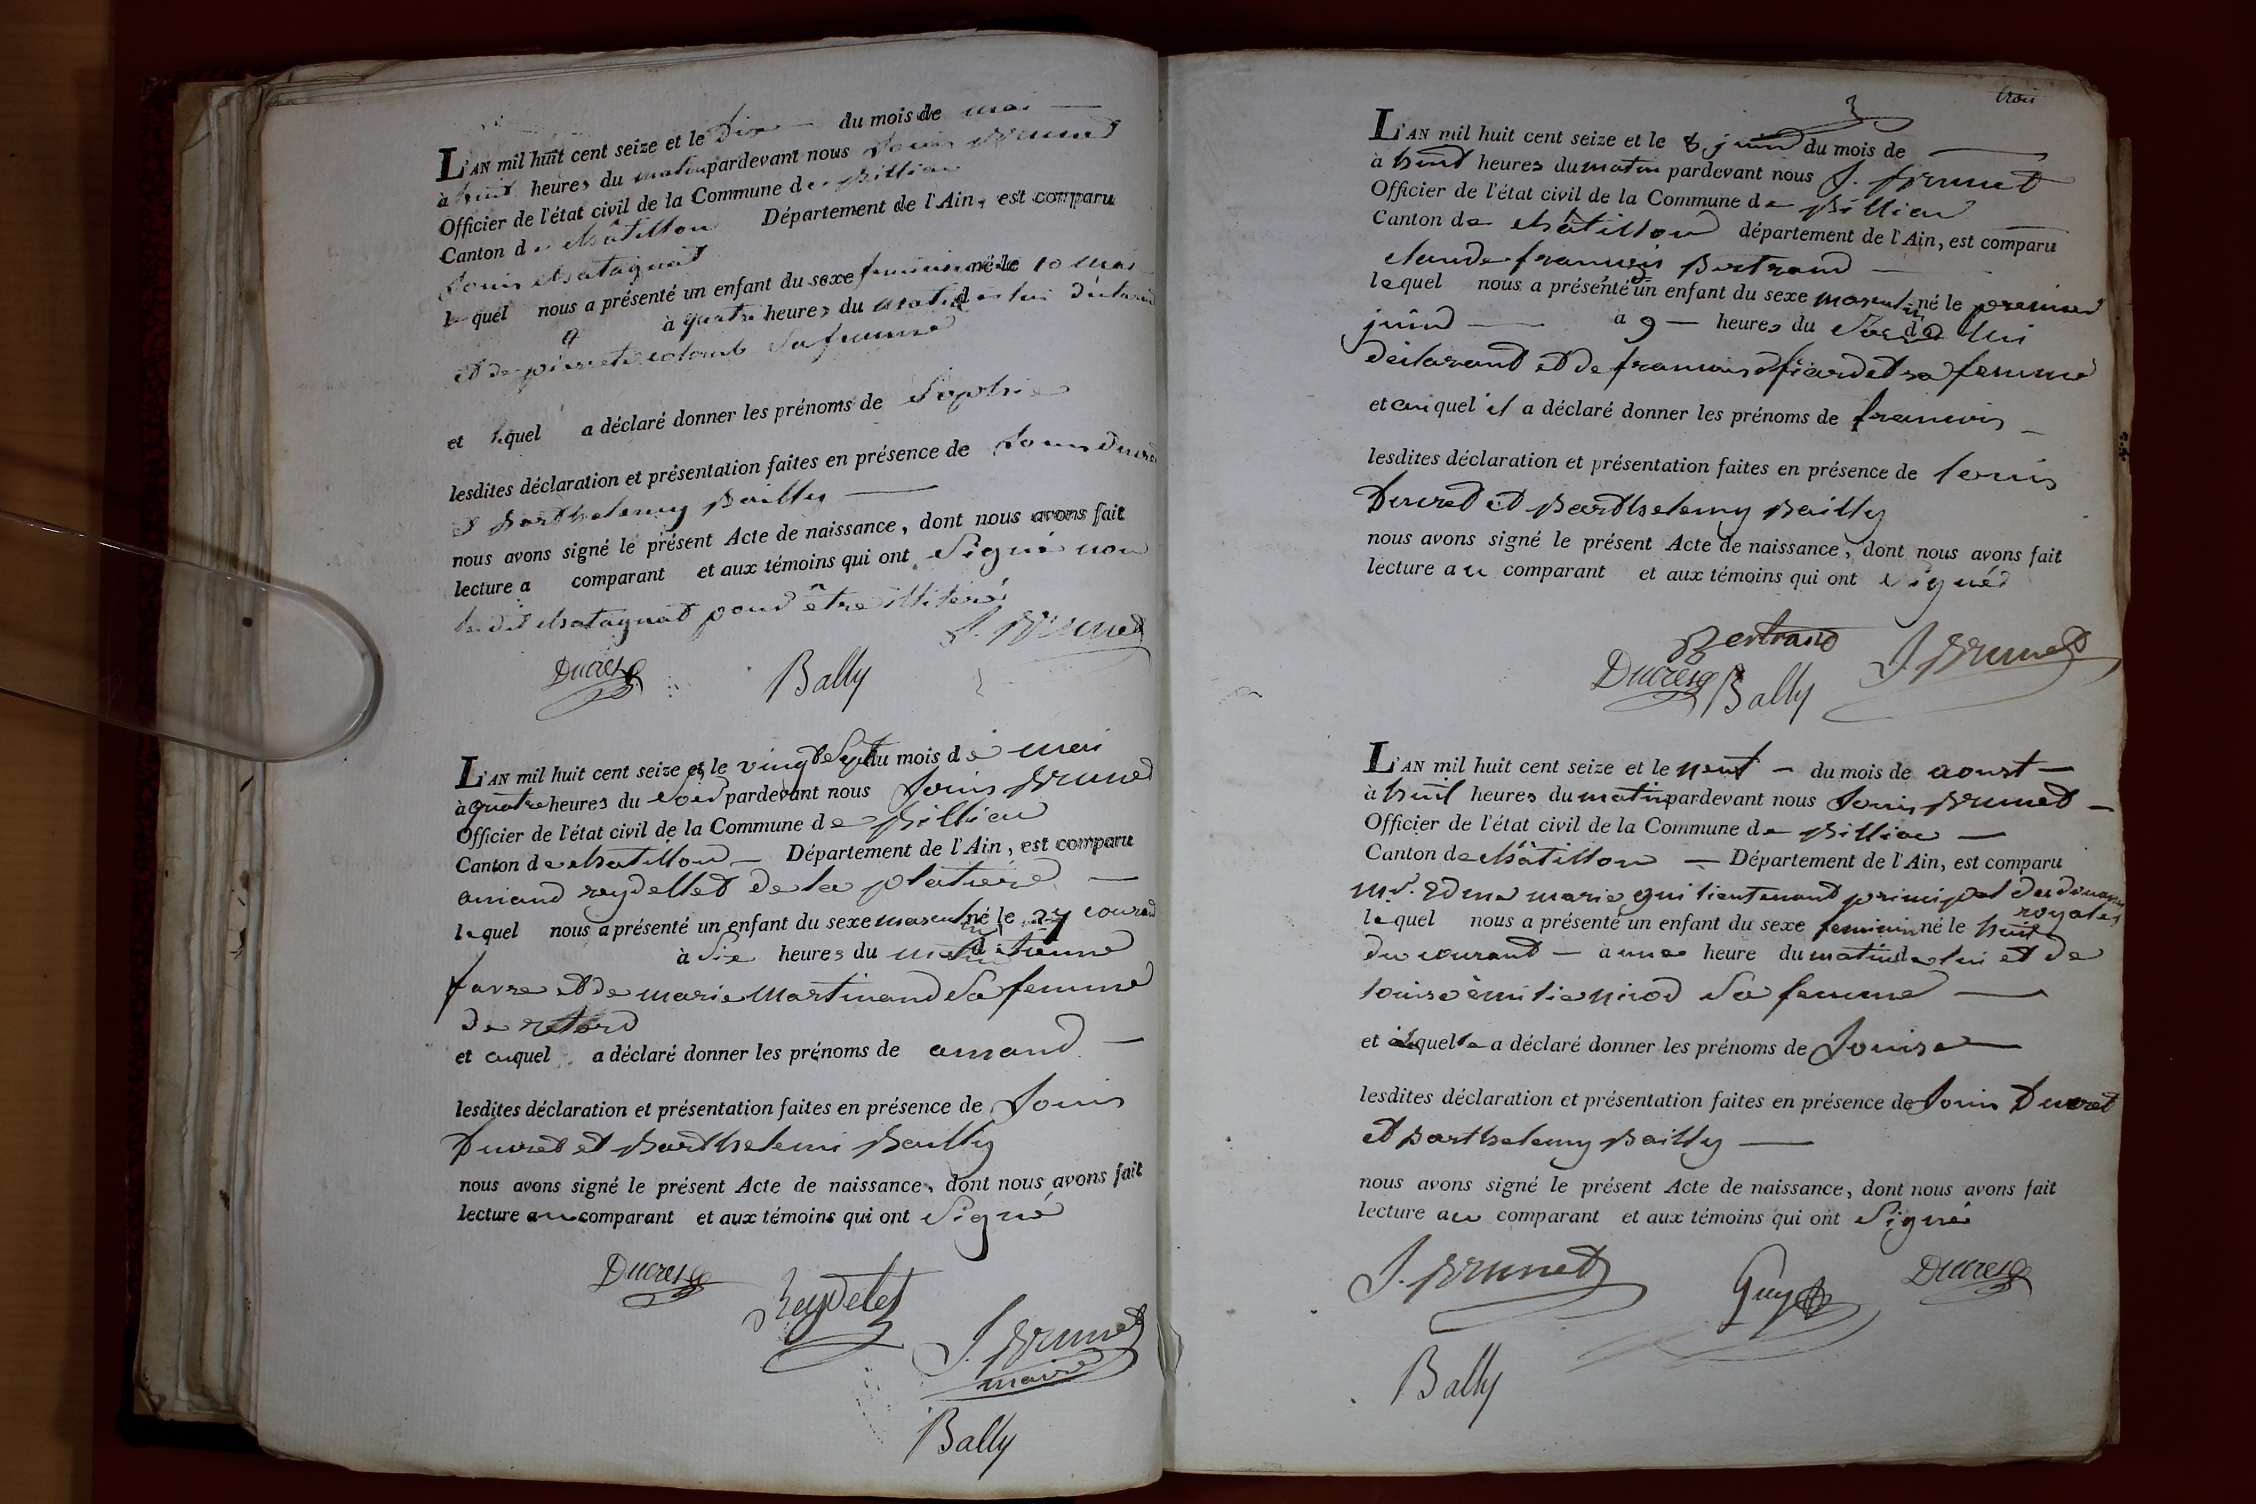 L'AN mil huit cent seize et le Dix du mois de mai
à huit heures du matin pardevant nous Louis Brunet
Officier de l'état civil de la Commune de Billiau
Canton de châtillon Département de l'Ain, est comparu
Louis chatagnat
lequel nous a présenté un enfant du sexe feminin né le 10 mai
à quatre heures du matin de lui déclarant
et de pierrete colomb Sa femme
et lequel a déclaré donner les prénoms de Sophie
lesdites déclaration et présentation faites en présence de Louis Ducret
et Barthelemy Bailly
nous avons signé le présent Acte de naissance, dont nous avons fait
lecture a comparant et aux témoins qui ont Signé non
le dit chatagnat pour être illiteré
L. Brunet
Ducret Bally
L'AN mil huit cent seize et le vingt Sept du mois de mai
à quatre heures du Soir pardevant nous Louis Brunet
Officier de l'état civil de la Commune de Billiau
Canton de chatillon Département de l'Ain, est comparu
amand reydellet de la platiere
lequel nous a présenté un enfant du sexe masculin né le 27 courant
à Six heures du matin d'etienne
favre et de marie Martinand Sa femme
de retord
et auquel a déclaré donner les prénoms de amand
lesdites déclaration et présentation faites en présence de Louis
Ducret et Barthelemi Bailly
nous avons signé le présent Acte de naissance, dont nous avons fait
lecture au comparant et aux témoins qui ont Signé
Ducret
Reydelet
L. Brunet
maire
Bally
trois
3
L'AN mil huit cent seize et le 8 juin du mois de
à huit heures du matin pardevant nous L. Brunet
Officier de l'état civil de la Commune de Billiau
Canton de châtillon département de l'Ain, est comparu
claude françois Bertrand
lequel nous a présenté un enfant du sexe masculin né le premier
juin à 9 heures du Soir de lui
déclarant et de françoise fiardet sa femme
et auquel il a déclaré donner les prénoms de francois
lesdites déclaration et présentation faites en présence de louis
Ducret et Barthelemy Bailly
nous avons signé le présent Acte de naissance, dont nous avons fait
lecture au comparant et aux témoins qui ont Signés
Bertrand L. Brunet
Ducret Bally
L'AN mil huit cent seize et le neuf du mois de aoust
à huit heures du matin pardevant nous Louis Brunet
Officier de l'état civil de la Commune de Billiau
Canton de châtillon Département de l'Ain, est comparu
Mr. Edme marie gui lieutenant principal des douanes
royales
lequel nous a présenté un enfant du sexe feminin né le huit
du courant à une heure du matin de lui et de
louise èmilie nirod Sa femme
et àlaquelle a déclaré donner les prénoms de Louise
lesdites déclaration et présentation faites en présence de Louis Ducret
et Barthelemy Bailly
nous avons signé le présent Acte de naissance, dont nous avons fait
lecture au comparant et aux témoins qui ont Signé
L. Brunet Guy Ducret
Bally